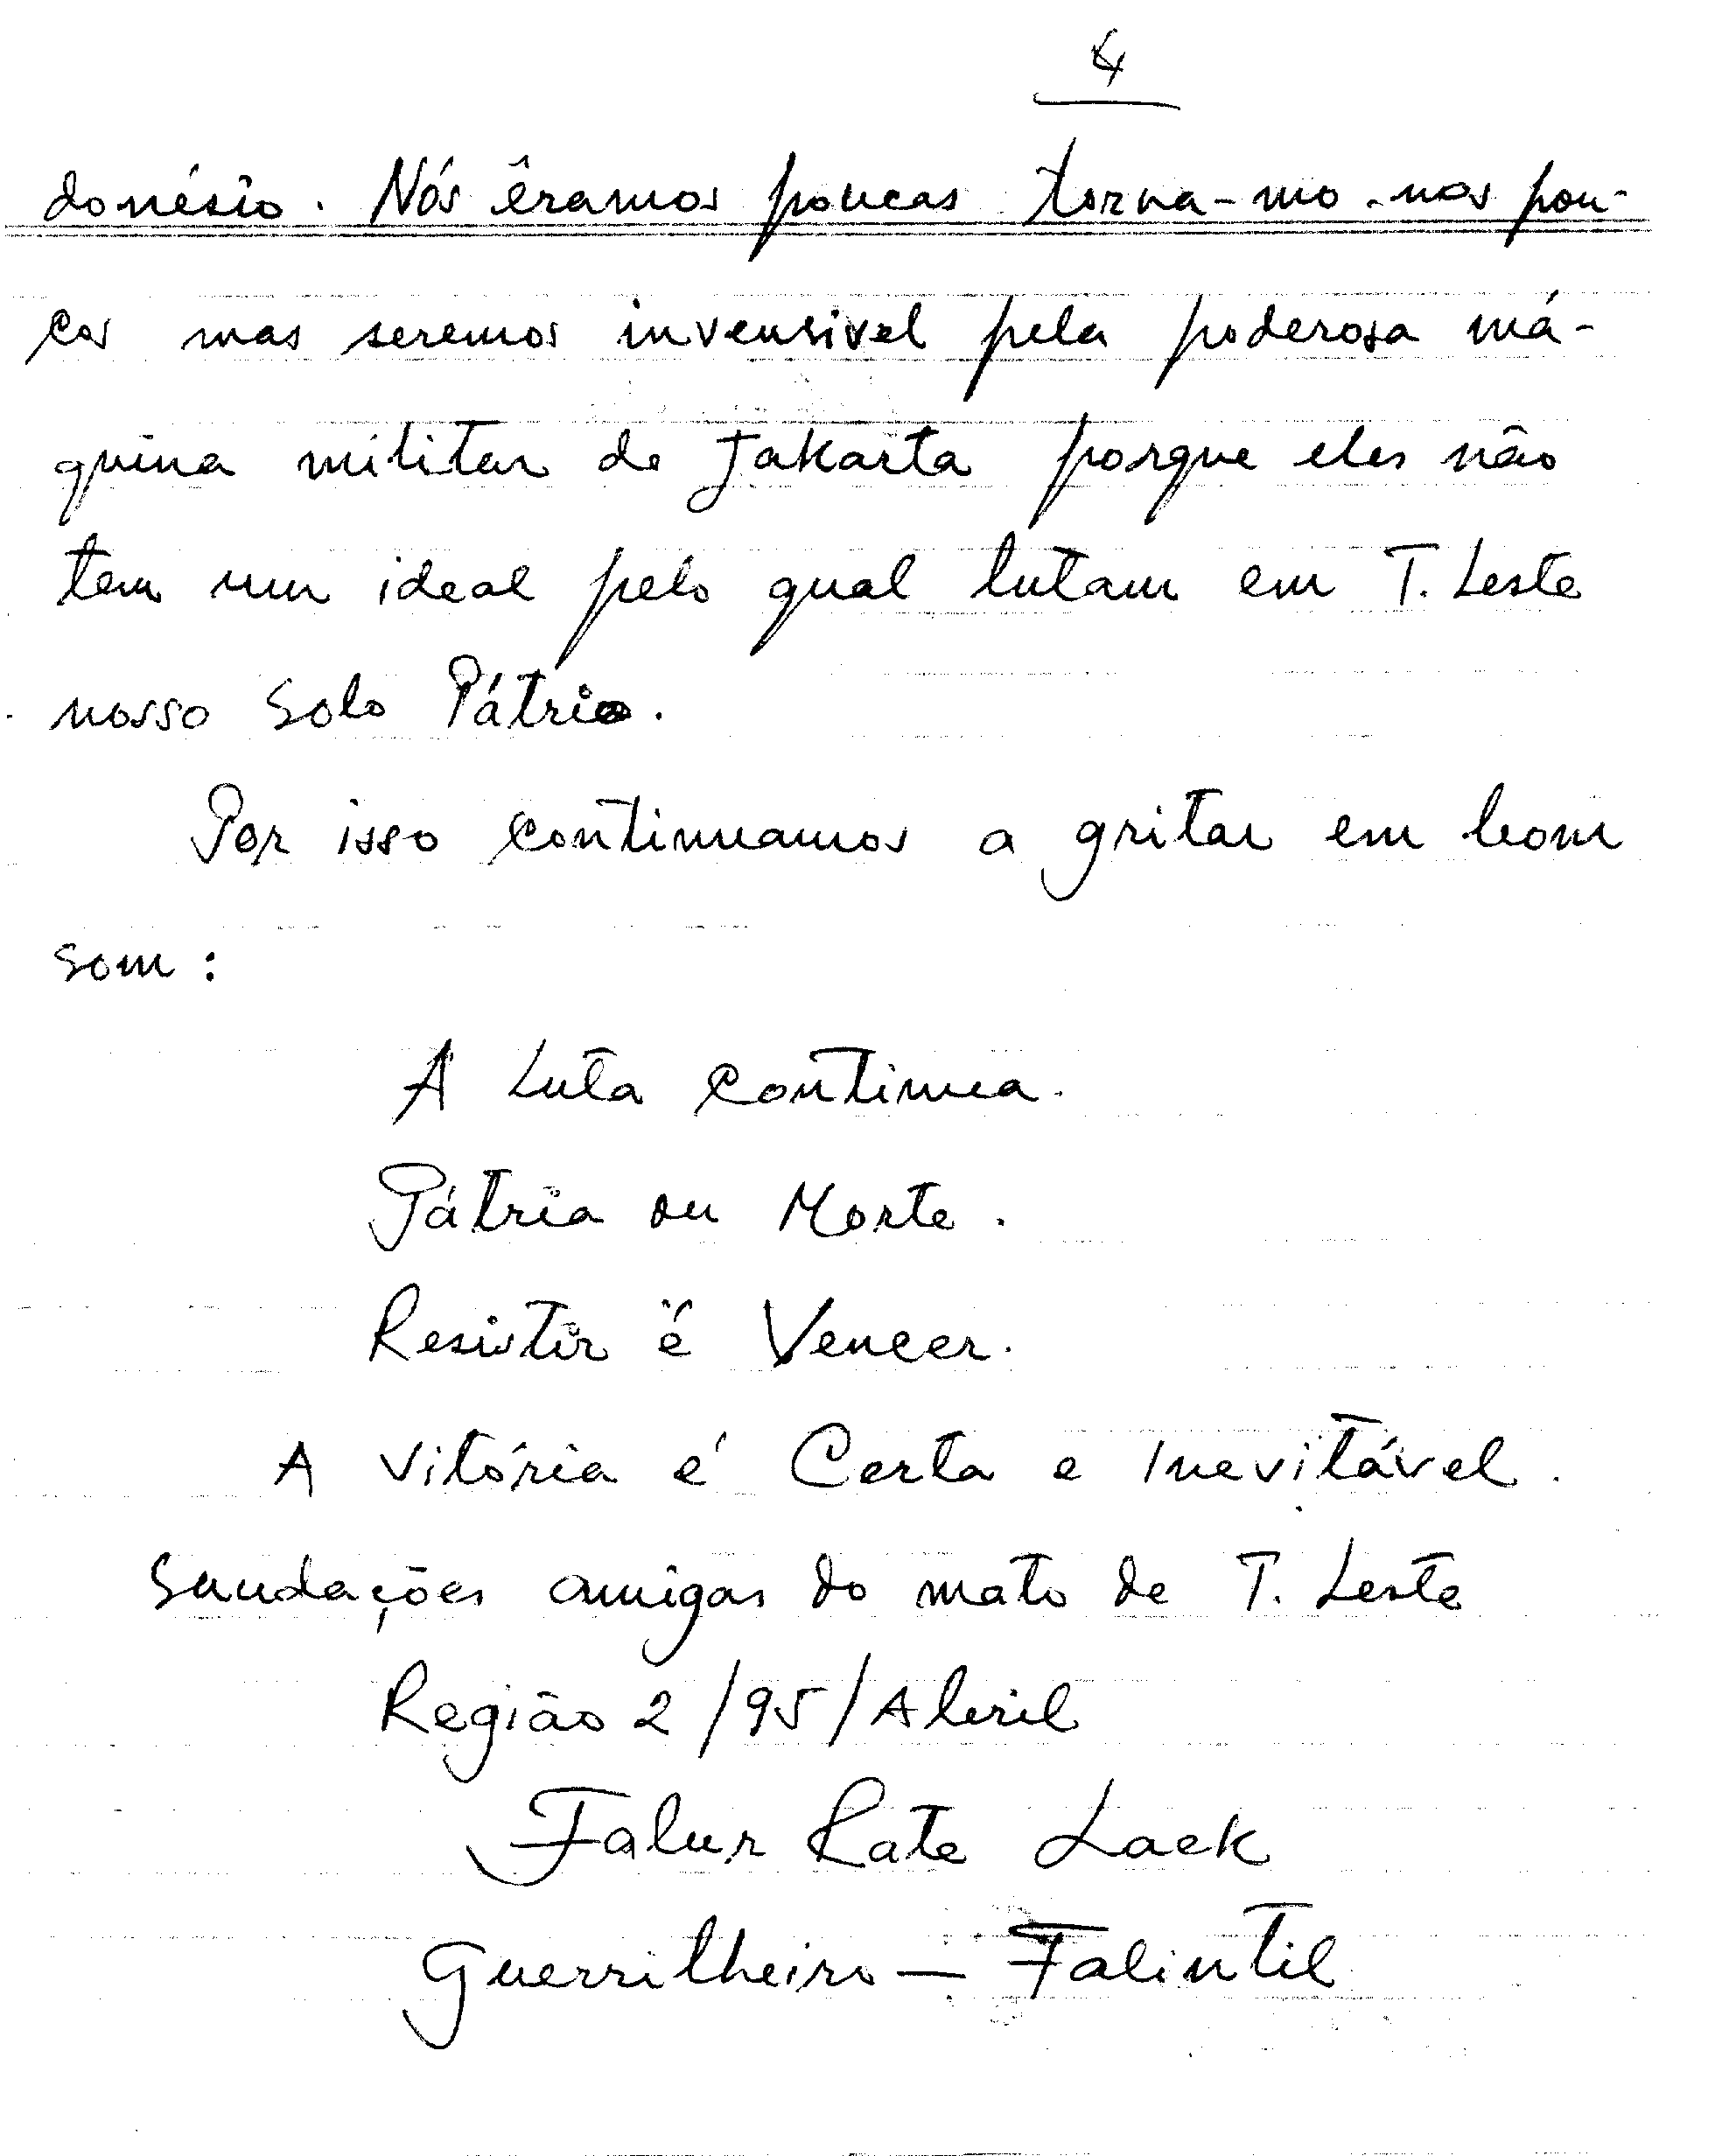 4
donésio. Nós êramos poucas torna-mo-nos pou-
cos mas seremos invensivel pela poderosa má-
quina militar de Jakarta porque eles não
tem um ideal pelo qual lutam em T. Leste
nosso Solo Pátrio.
Por isso continuamos a gritar em bom
som :
A Luta Continua.
Pátria ou Morte.
Resistir é Vencer.
A Vitória é Certa e Inevitável.
Saudações amigas do mato de T. Leste
Região 2/95/Abril
Falur Rate Laek
Guerrilheiro — Falintil